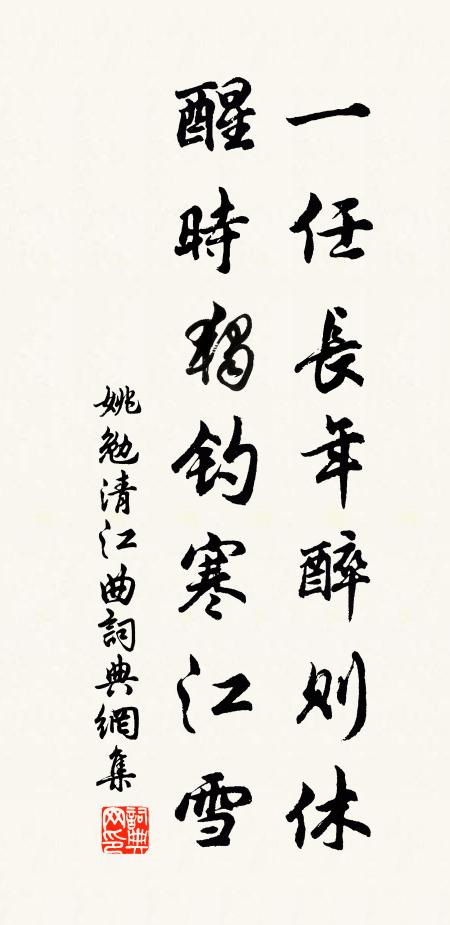 一任長年醉則休
醒時獨釣寒江雪
姚勉清江曲詞典網集
詞典网印